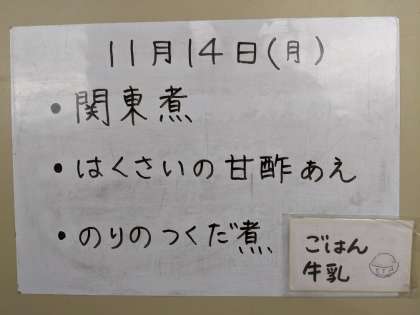 11月14日(月)
・関東煮
・はくさいの甘酢あえ
・のりのつくだ煮
ごはん
牛乳